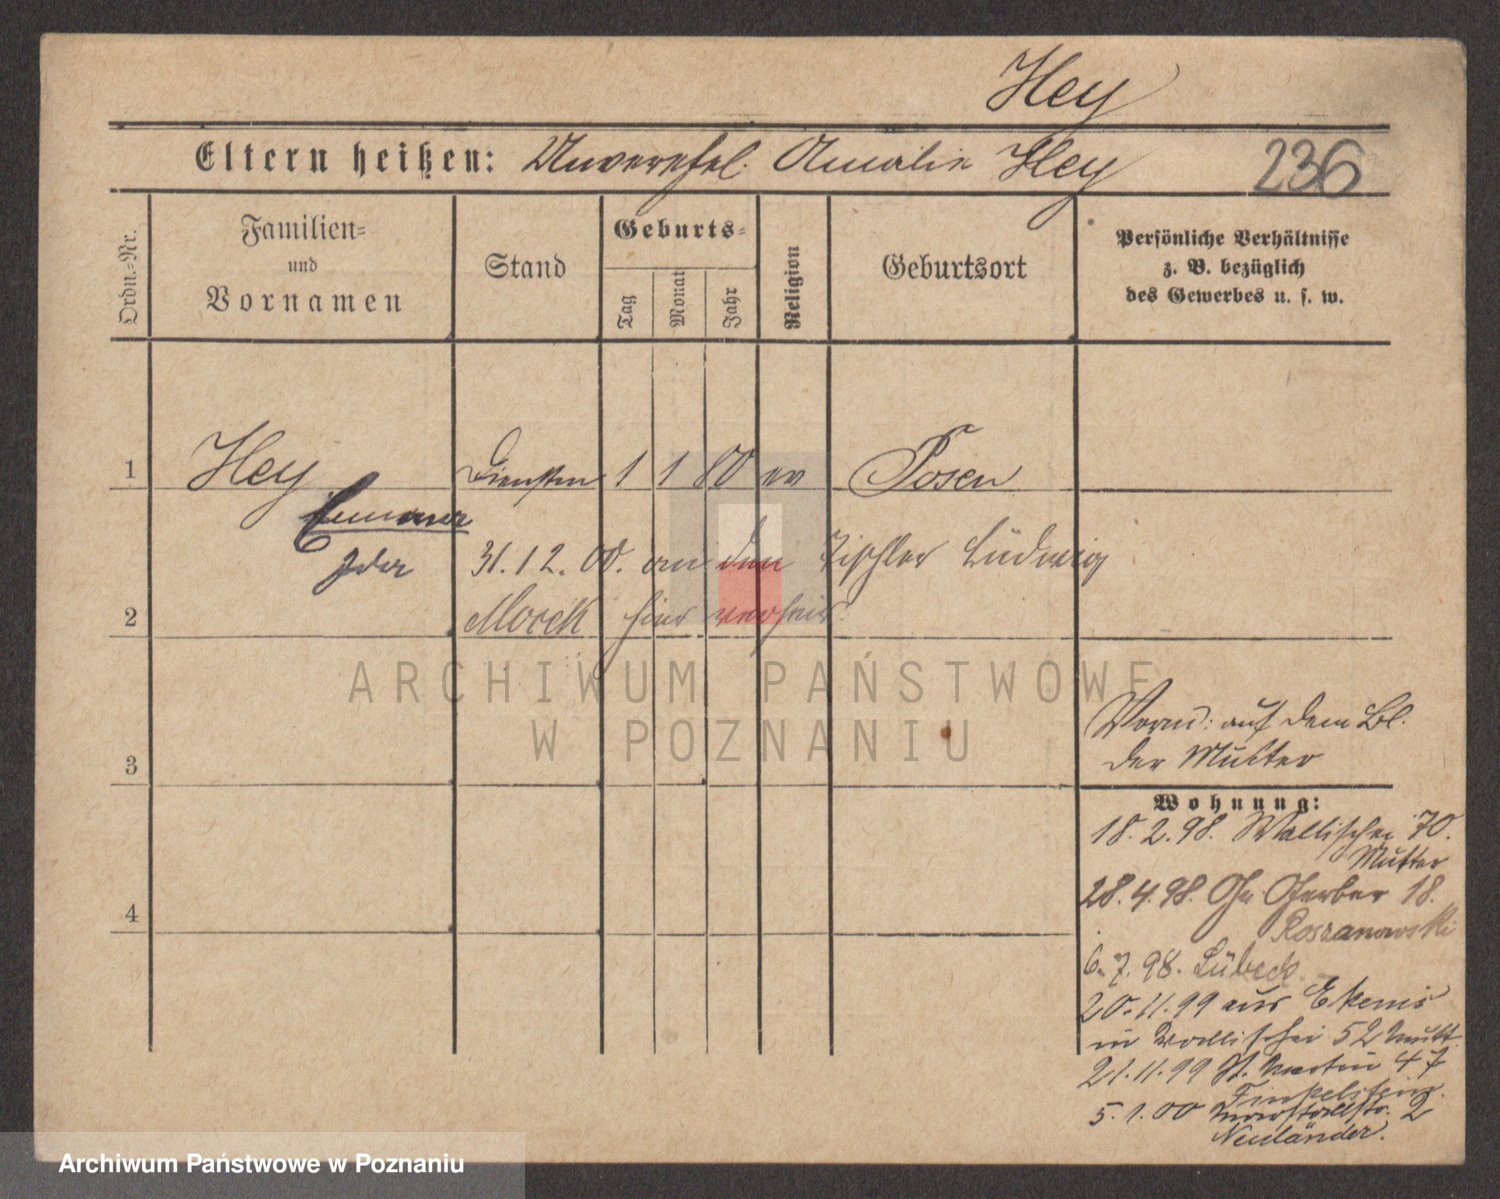 Hey
Eltern heißen: Unverehel. Amalie Hey
236
Ordn.-Nr.
Familien-
und
Vornamen
Stand
Geburts-
Tag
Monat
Jahr
Religion
Geburtsort
Persönliche Verhältnisse
z. B. bezüglich
des Gewerbes u. s. w.
1 Hey 1 1 80 ev Posen
31.12.00. an den Tischler Ludwig
2 hier verheir.
3
Vorm: auf dem Bl.
der Mutter
Wohnung:
18.2.98. Wallischei 70.
Mutter
28.4.98. Gr. Gerber 18.
Roszanowski
6.7.98. Lübeck
20.11.99 aus
in Wallischei 52 Mutt.
4
21.11.99 St. Martin 47
Finkelstein
5.1.00 Marstallstr. 2
Neuländer.
ARCHIWUM PAŃSTWOWE
W POZNANIU
Archiwum Państwowe w Poznaniu